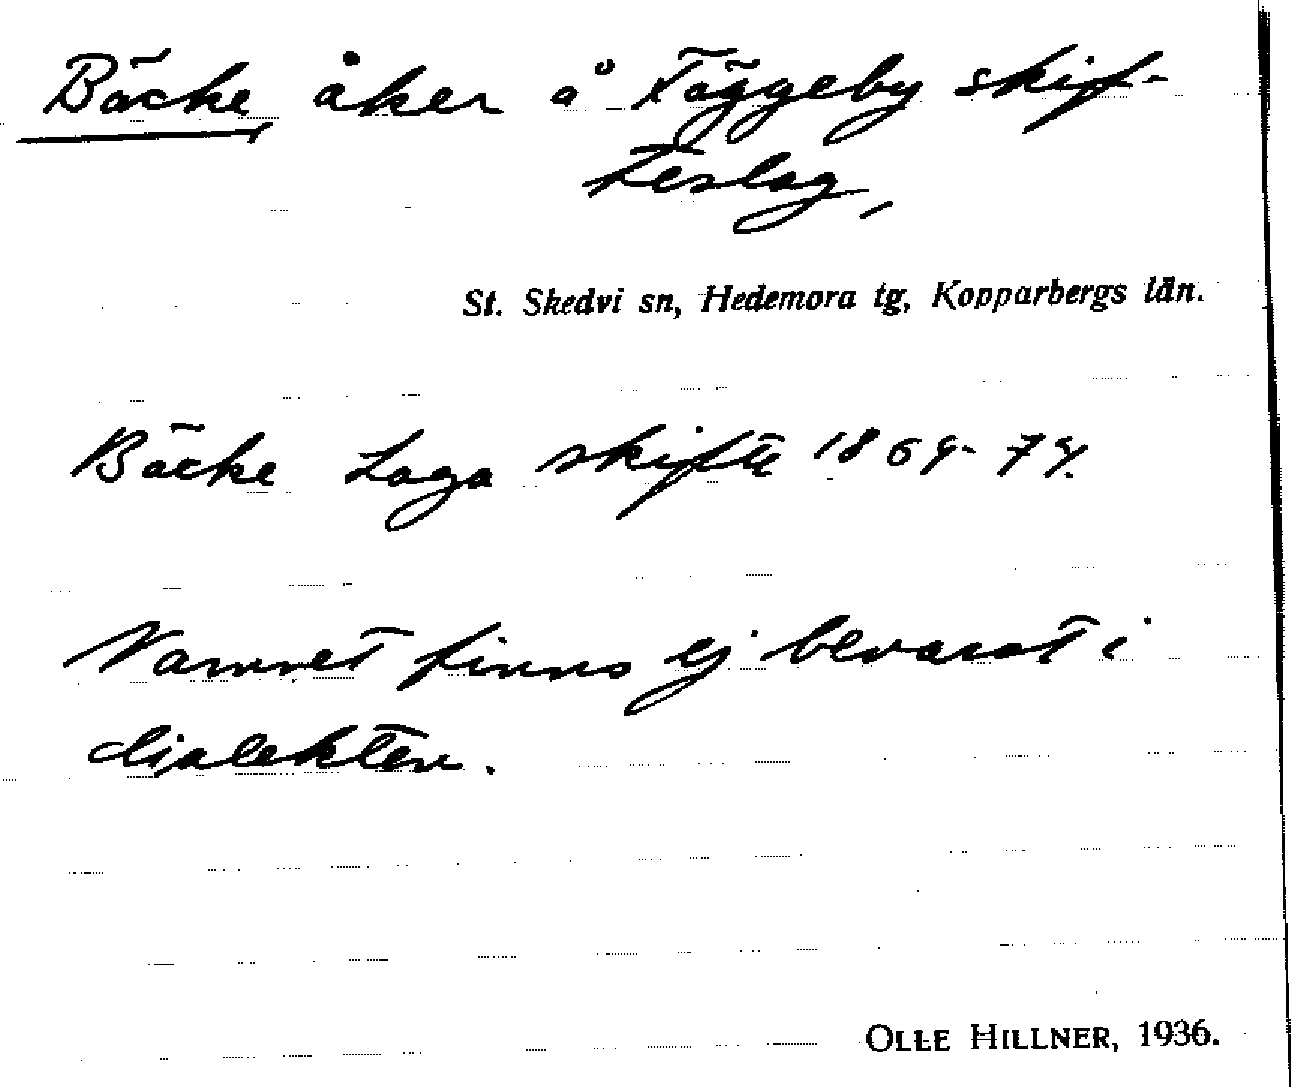 Bäcke åker å Fäggeby skif-
teslag,
St. Skedvi sn, Hedemora tg, Kopparbergs län.
Bäcke Laga skifte 1869-74.
Namnet finns ej bevarat i
dialekten.
OLLE HILLNER, 1936.